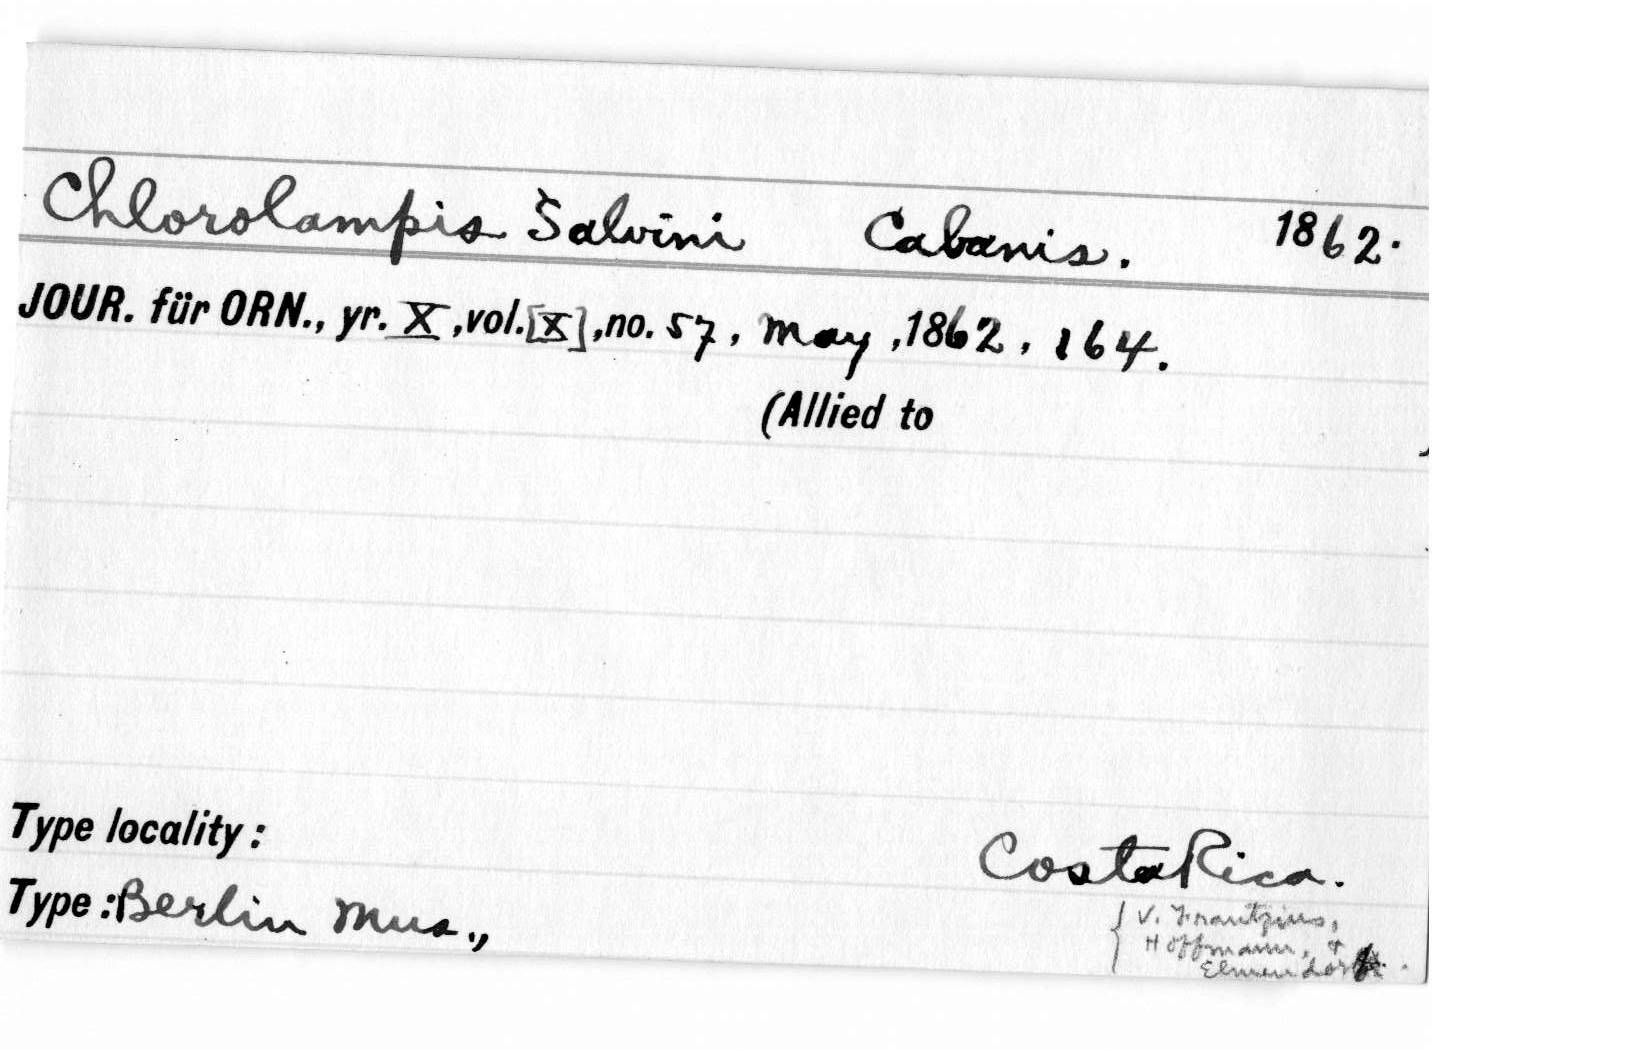 Chlorolampis Salvini Cabanis. 1862.
JOUR. für ORN., yr. X, vol. [X], no. 57, May, 1862, 164.
(Allied to )
Type locality: Costa Rica.
Type: Berlin Mus.,
{ V. Frantzius,
Hoffmann, +
Elmendorf.